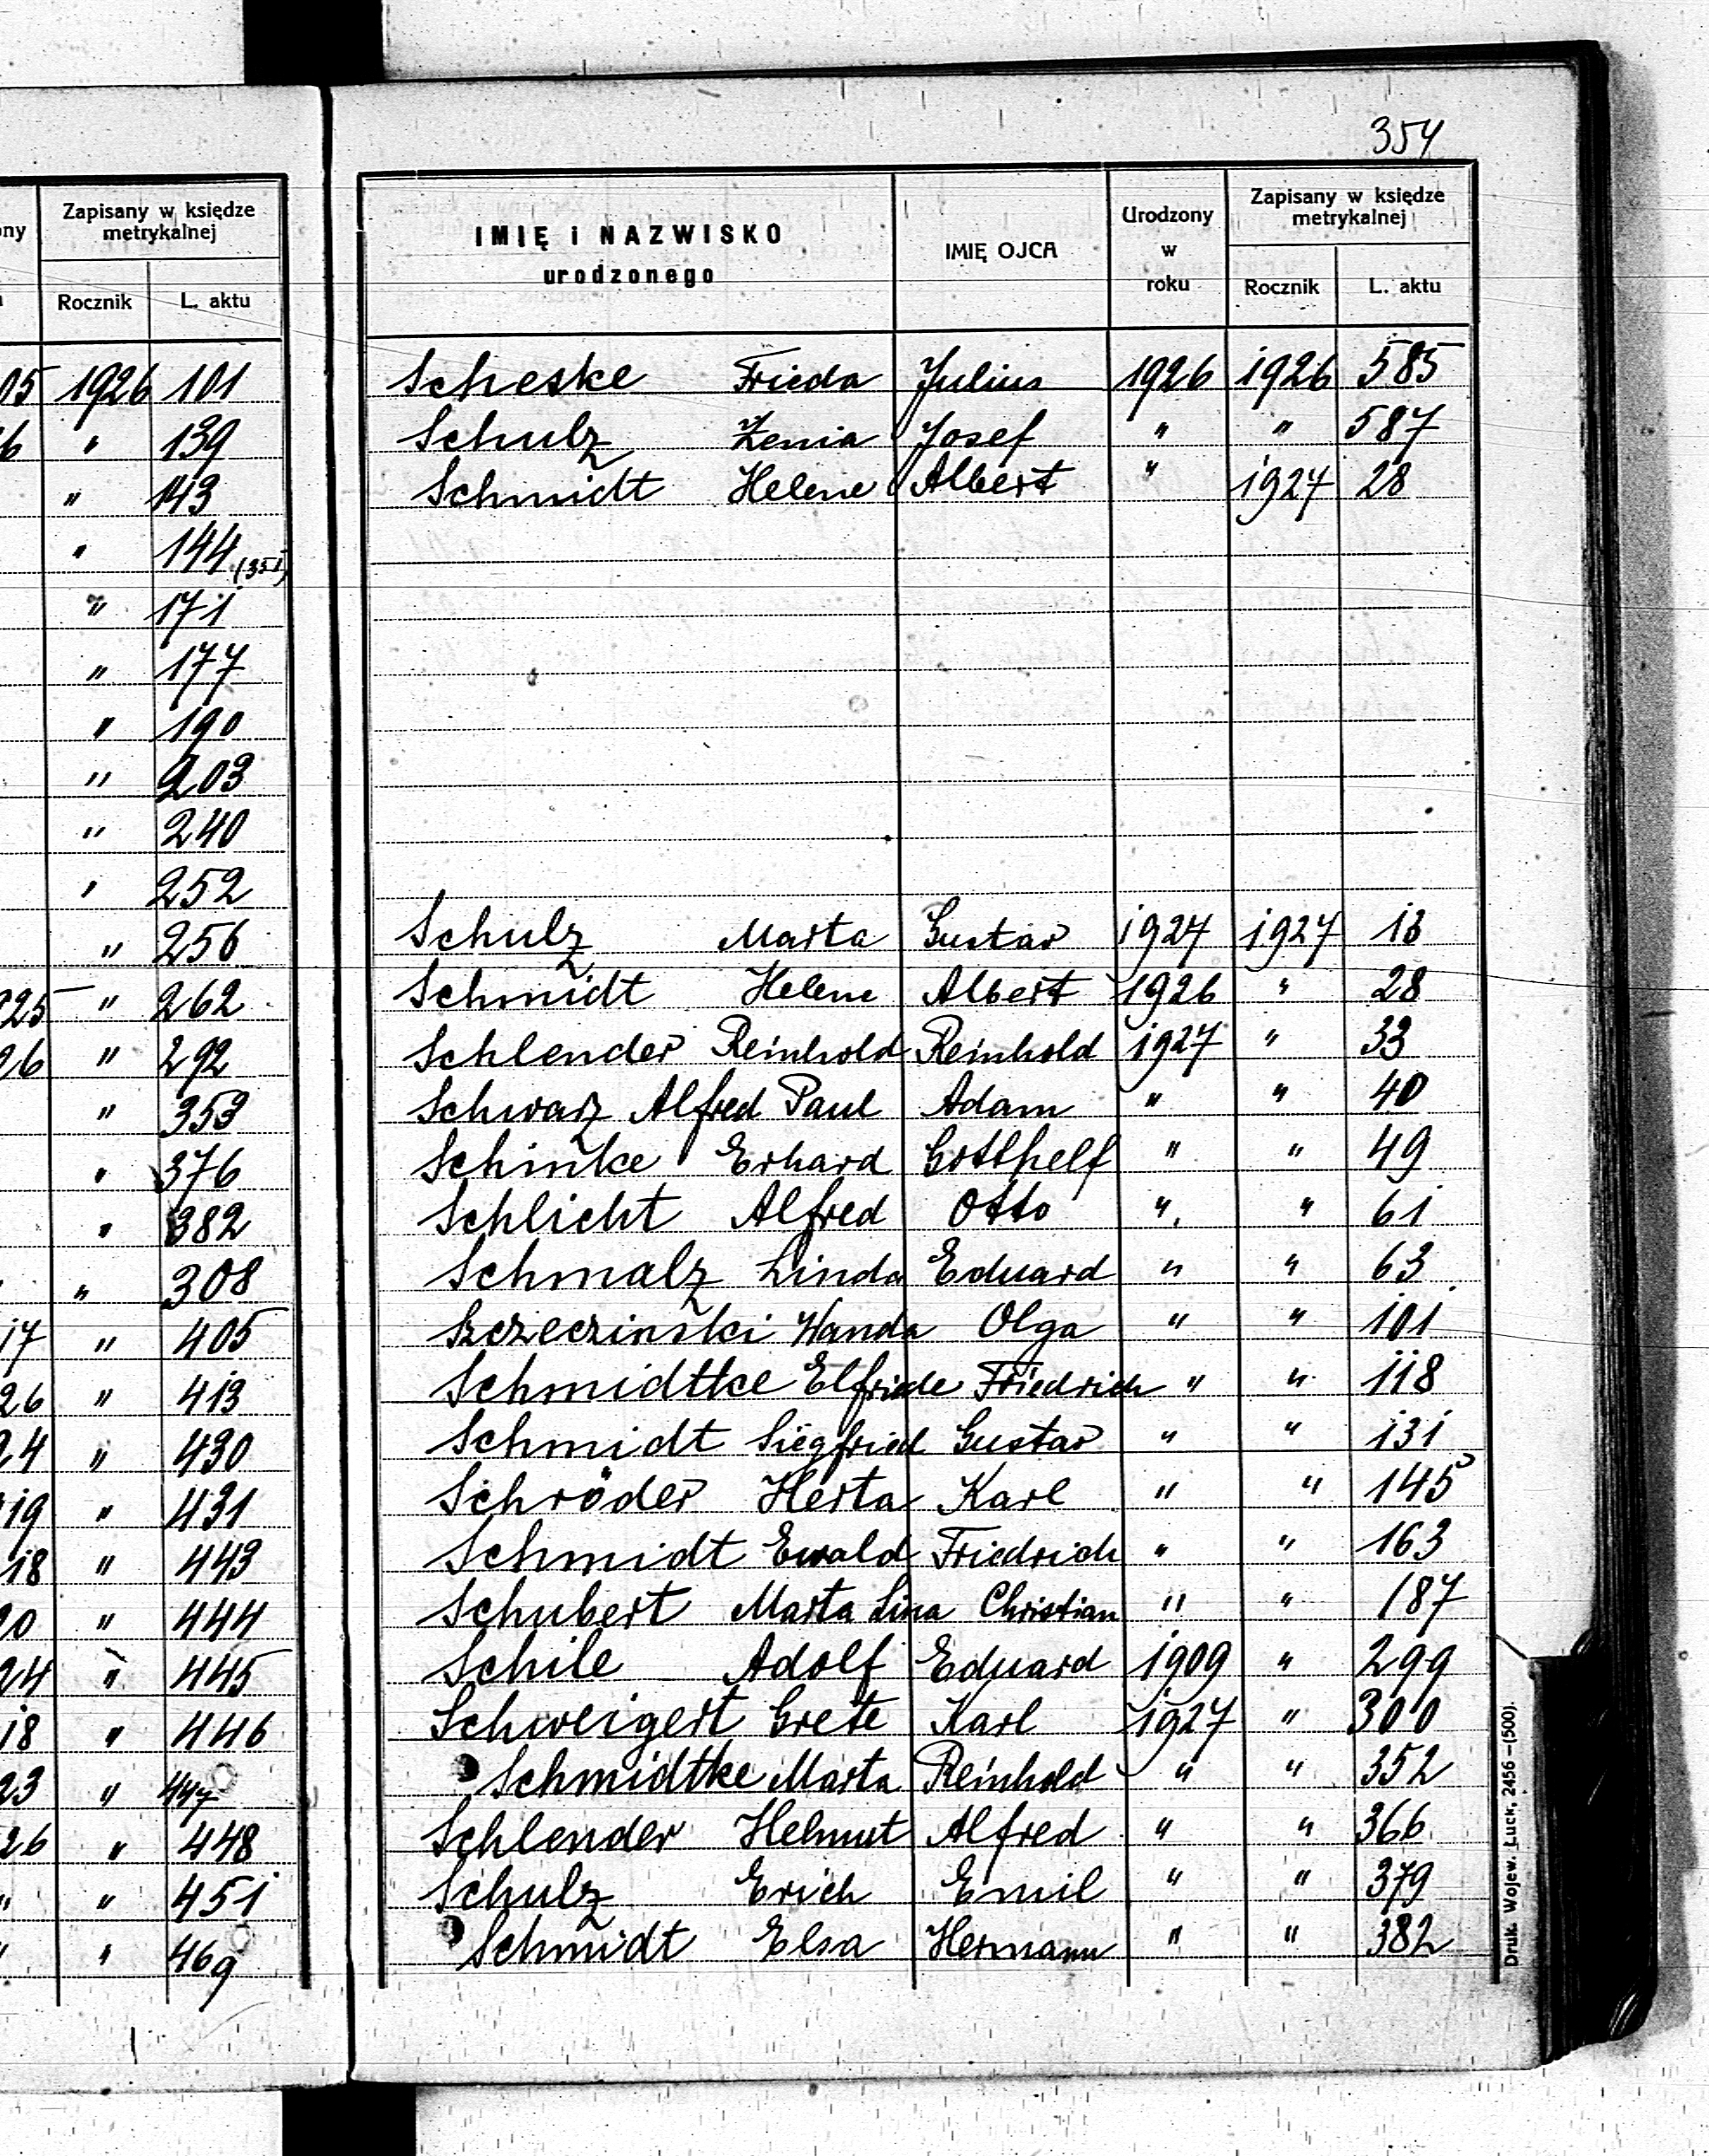 354
ony Zapisany w księdze metrykalnej
Rocznik L. aktu
05 1926 101
6 " 139
" 143
" 144 (351)
" 171
" 177
" 190
" 203
" 240
" 252
" 256
925 " 262
26 " 292
" 353
" 376
" 382
" 308
17 " 405
26 " 413
24 " 430
19 " 431
18 " 443
20 " 444
24 " 445
18 " 446
23 " 447
26 " 448
" " 451
" " 469
IMIĘ i NAZWISKO urodzonego IMIĘ OJCA Urodzony w roku Zapisany w księdze metrykalnej
Rocznik L. aktu
Scheske Frieda Julius 1926 1926 585
Schulz Zenia Josef " " 587
Schmidt Helene Albert " 1927 28
Schulz Marta Gustav 1927 1927 13
Schmidt Helene Albert 1926 " 28
Schlender Reinhold Reinhold 1927 " 33
Schwarz Alfred Paul Adam " " 40
Schinke Erhard Gotthelf " " 49
Schlicht Alfred Otto " " 61
Schmalz Linda Eduard " " 63
Szczeczinski Wanda Olga " " 101
Schmidtke Elfriede Friedrich " " 118
Schmidt Siegfried Gustav " " 131
Schröder Herta Karl " " 145
Schmidt Ewald Friedrich " " 163
Schubert Marta Lina Christian " " 187
Schile Adolf Eduard 1909 " 299
Schweigert Grete Karl 1927 " 300
Schmidtke Marta Reinhold " " 352
Schlender Helmut Alfred " " 366
Schulz Erich Emil " " 379
Schmidt Elsa Hermann " " 382
Druk. Wojew. Łuck, 2456—(500).